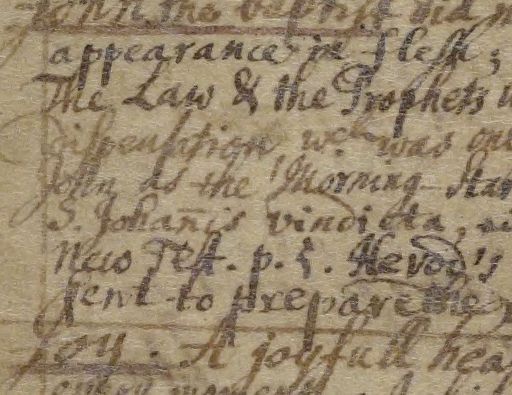 John the baptist did
appearance in flesh;
The Law & the Prophets
dispensation wch was
John as the Morning-star
S. Johannis vindicta,
New Test. p. 5. Herod's
sent to prepare the
Joy. A joyfull